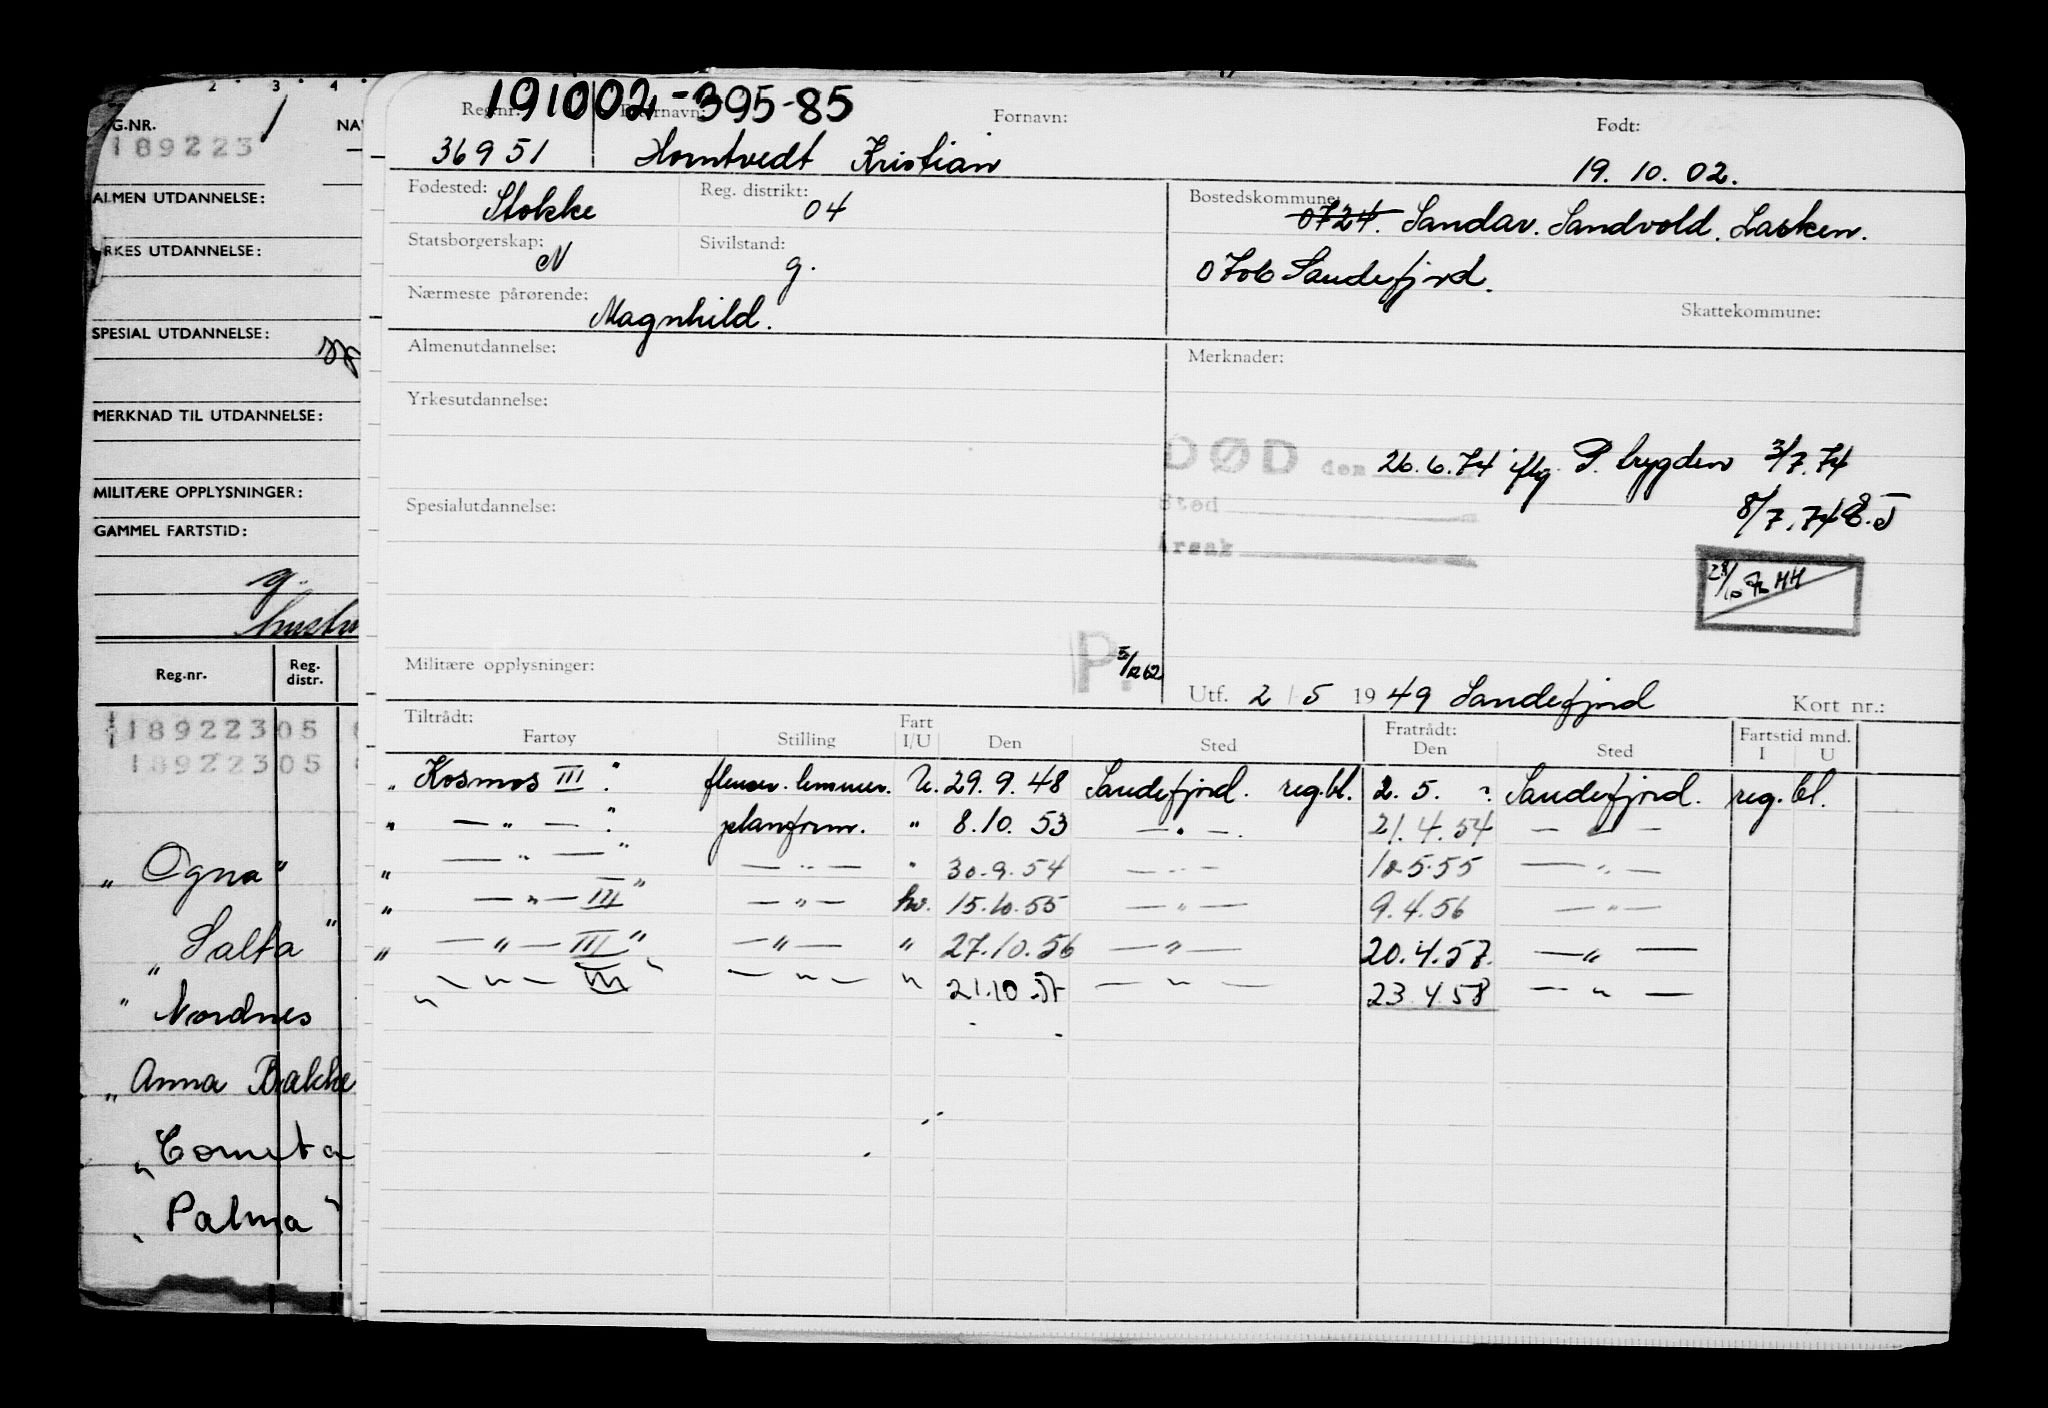 2 3 4
G.NR. NA
189223
ALMEN UTDANNELSE:
RKES UTDANNELSE:
SPESIAL UTDANNELSE:
MERKNAD TIL UTDANNELSE:
MILITÆRE OPPLYSNINGER:
GAMMEL FARTSTID:
g.
Reg.nr. Reg. distr.
18922305
18922305
„ Ogna"
„ Salta "
" Nordnes
„ Anna Bakke
„ Cometa
„ Palma "
191002-395-85
Reg.nr. Etternavn: Fornavn: Født:
36951 Horntvedt Kristian 19. 10. 02.
Fødested: Stokke Reg. distrikt: 04 Bostedskommune:
0724. Sandar. Sandvold. Lasken.
Statsborgerskap: N Sivilstand: g.
0706 Sandefjord.
Nærmeste pårørende: Magnhild. Skattekommune:
Almenutdannelse: Merknader:
Yrkesutdannelse:
DØD den 26.6.74 iflg. P. bygden 3/7.74
Spesialutdannelse: Sted 8/7.74
Årsak
28/10
Militære opplysninger: P. 5/12 62
Utf. 2 / 5 1949 Sandefjord Kort nr.:
Tiltrådt: Fart Fratrådt: Fartstid mnd.
Fartøy Stilling I/U Den Sted Den Sted I U
„ Kosmos III " flenser. lemmer. U. 29. 9. 48 Sandefjord. reg.bl. 2. 5. ? Sandefjord. reg.bl.
„ — " — " planform. " 8.10. 53 — " —. 21.4.54 — " —
„ — " — " — " — " 30.9.54 — " — 12.5.55 — " —
„ — " — III " — " — hv. 15.10.55 — " — 9.4.56 — " —
„ — " — III " — " — " 27.10.56 — " — 20.4.57. — " —
„ — " — III " — " — " 21.10.57 — " — 23.4.58 — " —